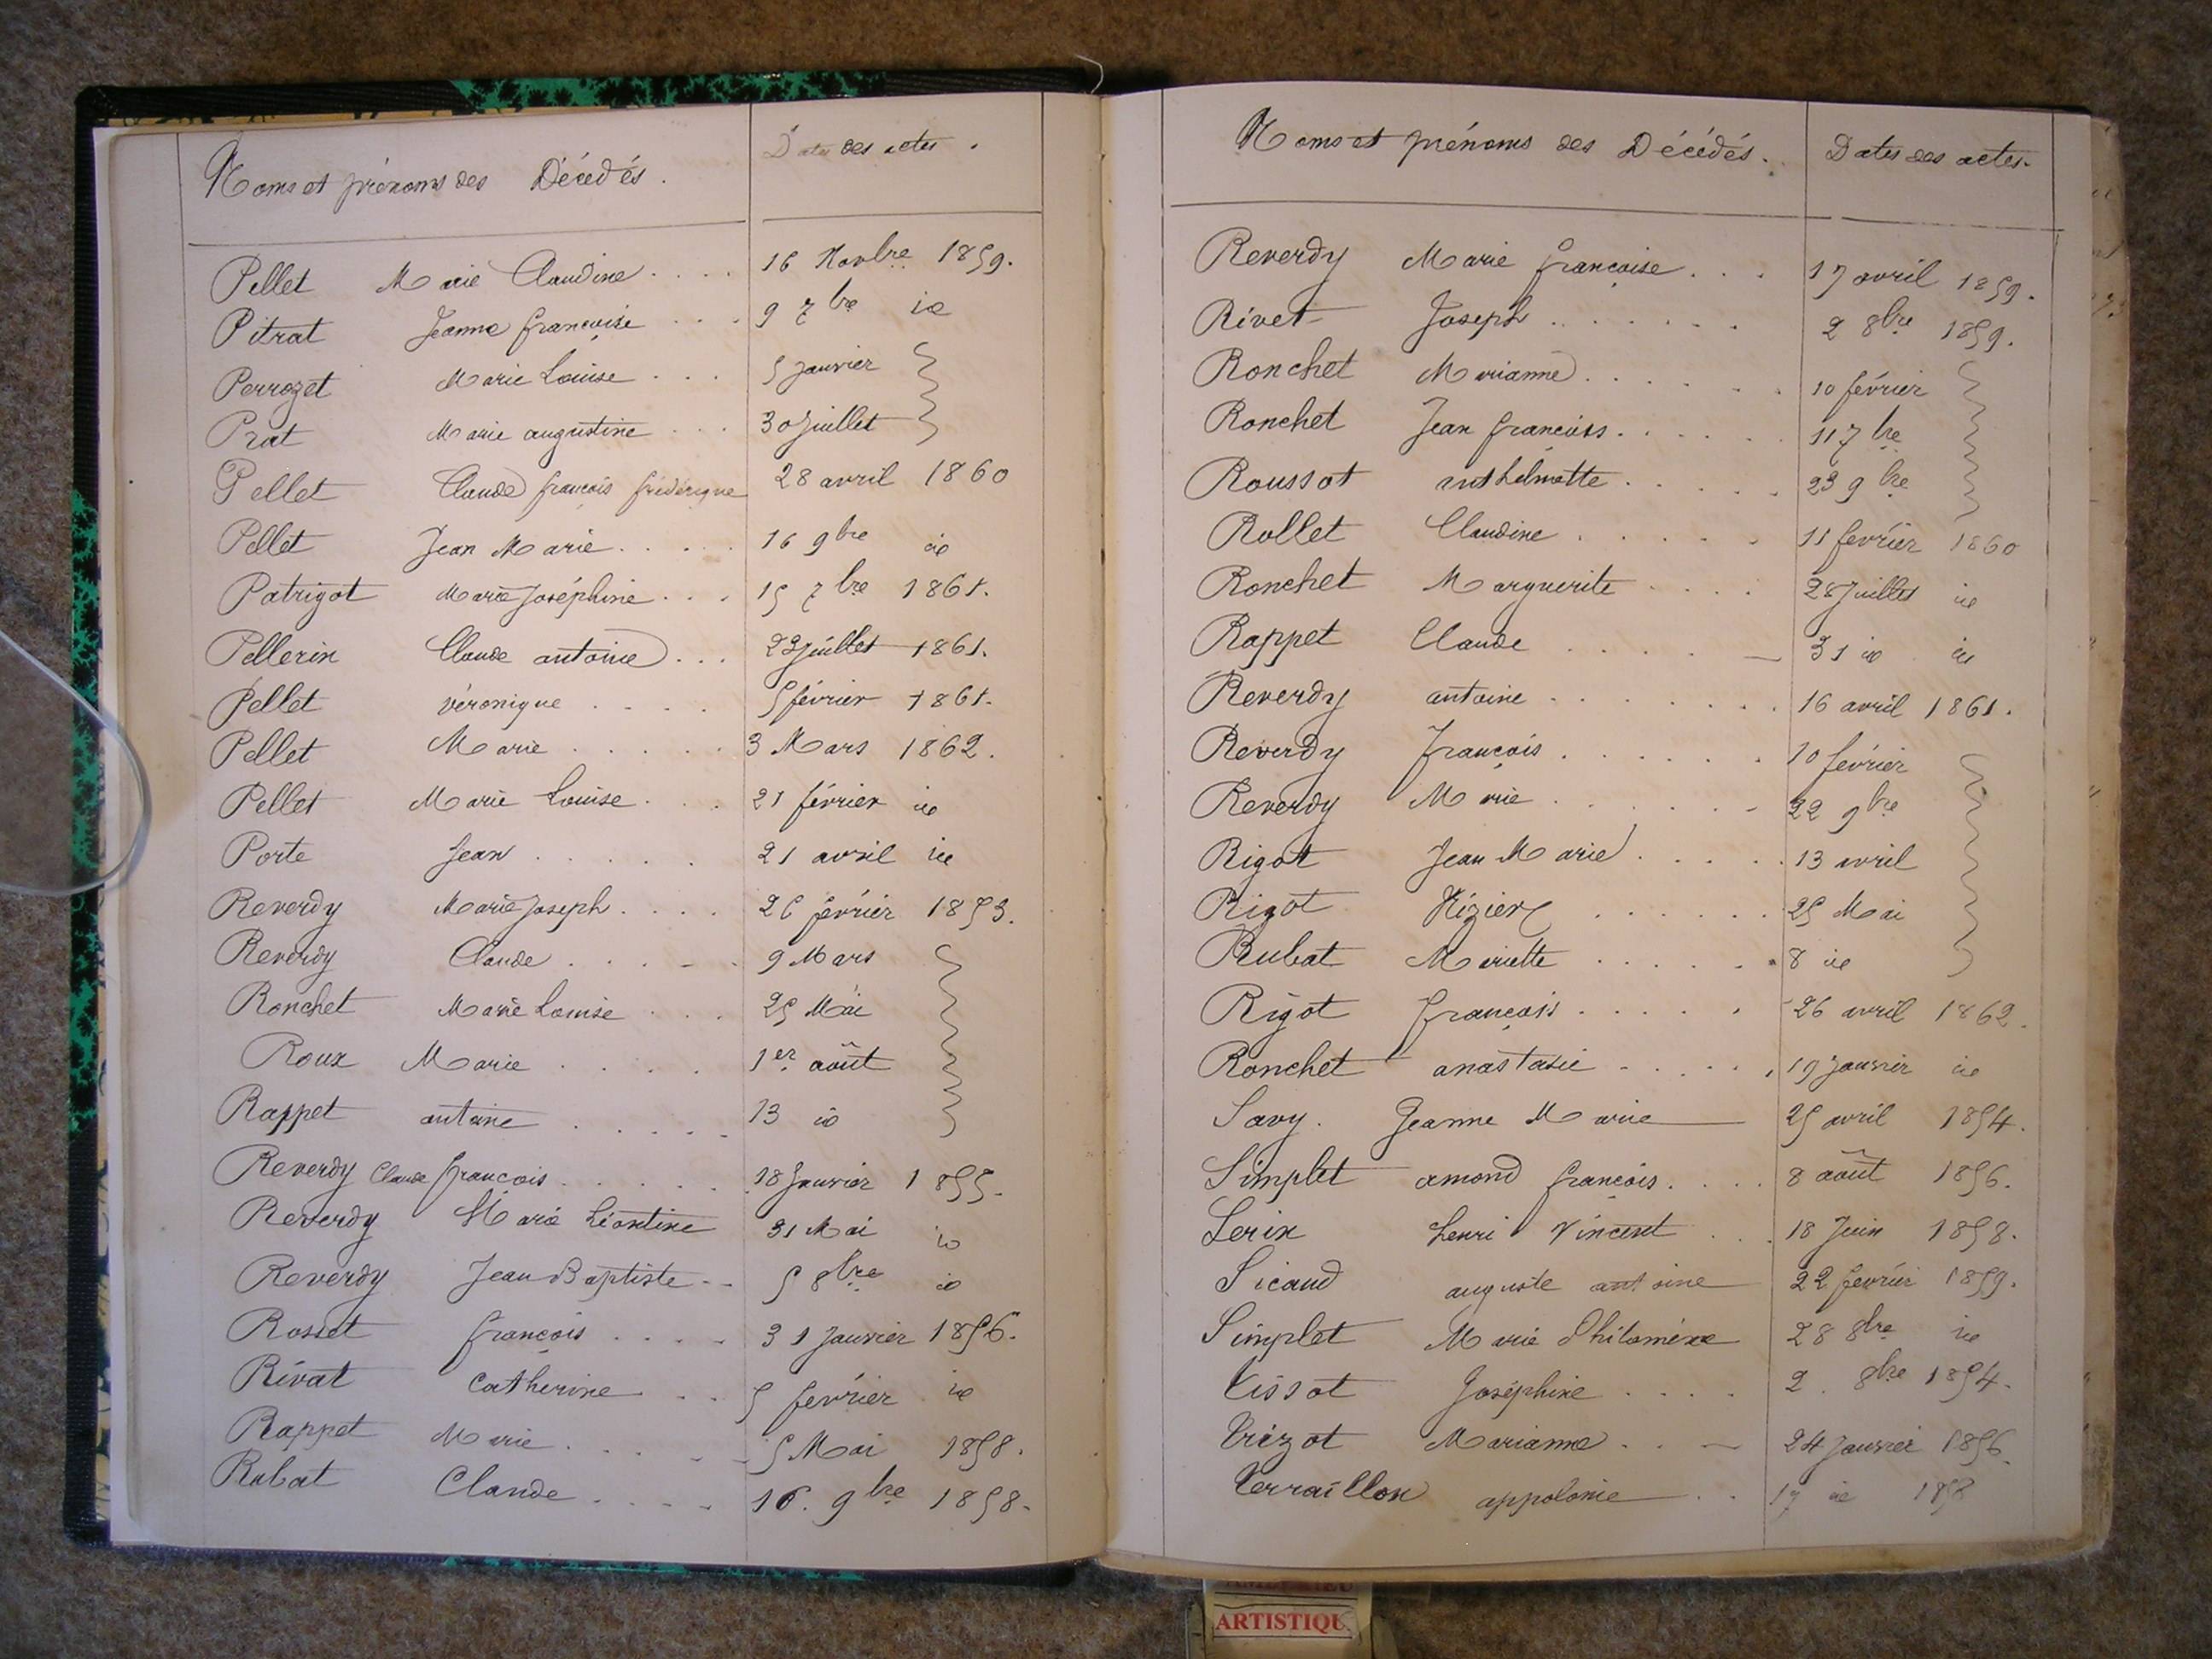 Noms et prénoms des Décédés. Dates des actes.
Pellet Marie Claudine .... 16 Novbre 1859.
Pitrat Jeanne françoise ... 9 7bre id
Perrozet Marie Louise ... 5 Janvier
Prat Marie augustine ... 30 Juillet
Pellet Claude françois frédérique 28 avril 1860
Pellet Jean Marie ..... 16 9bre id
Patrigot Marie Joséphine ... 15 7bre 1861.
Pellerin Claude antoine ... 23 juillet 1861.
Pellet véronique .... 5 février 1861.
Pellet Marie ..... 3 Mars 1862.
Pellet Marie Louise ... 21 février id
Porte Jean ..... 21 avril id
Reverdy Marie Joseph .... 26 février 1853.
Reverdy Claude ..... 9 Mars
Ronchet Marie Louise ... 25 Mai
Roux Marie .... 1er août
Rappet antoine ..... 13 id
Reverdy Claude françois ..... 18 Janvier 1855.
Reverdy Marie Léontine 31 Mai id
Reverdy Jean Baptiste -- 5 8bre id
Rosset françois .... 31 Janvier 1856.
Rivat Catherine ... 5 février id
Rappet Marie .... 5 Mai 1858.
Rubat Claude .... 16. 9bre 1858.
Noms et prénoms des Décédés. Dates des actes.
Reverdy Marie françoise ... 17 avril 1859.
Rivet Joseph ...... 2 8bre 1859.
Ronchet Marianne ...... 10 février
Ronchet Jean françois ..... 11 7bre
Roussot anthelmette ..... 23 9bre
Rollet Claudine ..... 11 février 1860
Ronchet Marguerite .... 28 Juillet id
Rappet Claude ..... 31 id id
Reverdy antoine ....... 16 avril 1861.
Reverdy françois ...... 10 février
Reverdy Marie ...... 22 9bre
Rigot Jean Marie ..... 13 avril
Rigot Nizier ...... 25 Mai
Rubat Mariette ..... 8 id
Rigot françois ..... 26 avril 1862.
Ronchet anastasie ..... 19 Janvier id
Savy. Jeanne Marie 25 avril 1854.
Simplet amond françois .... 8 août 1856.
Serin henri Vincent ... 18 Juin 1858.
Sicaud auguste antoine 22 février 1859.
Simplet Marie Philomène 28 8bre id
Tissot Joséphine .... 2. 8bre 1854.
Trizot Marianne ... 24 Janvier 1856
Terraillon appolonie .. 17 id 1858
ARTISTIQU